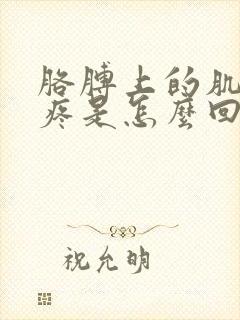 胳膊上的肌
疼是怎麼回
祝允明